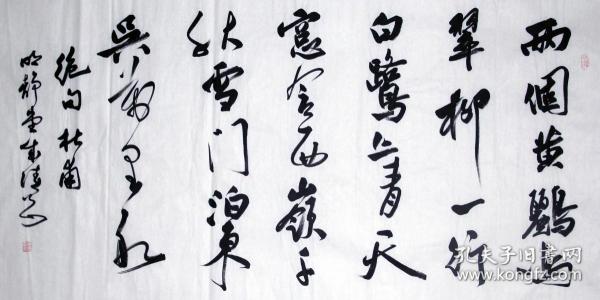 兩個黄鸝鳴
翠柳一行
白鷺上青天
窓含西嶺千
秋雪門泊東
吳萬里船
絶句杜甫
静堂
孔夫子旧书网
www.kongfz.com